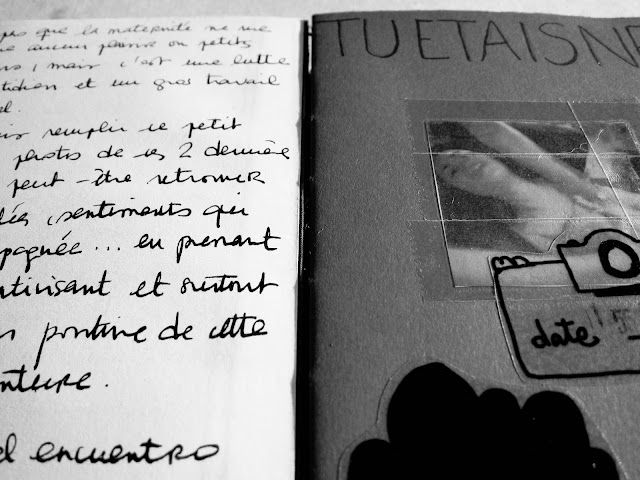 que la maternité ne me
aucun plaisir ou petits
, mais c'est une lutte
et un gros travail
remplir ce petit
photos de ces 2 dernière
peut-être retrouver
, sentiments qui
pagnée... en prenant
et surtout
positive de cette
enture.
el encuentro
TU ETAIS NE
date